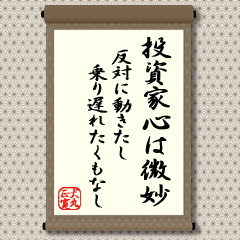 投資家心は微妙
反対に動きたし
乗り遅れたくもなし